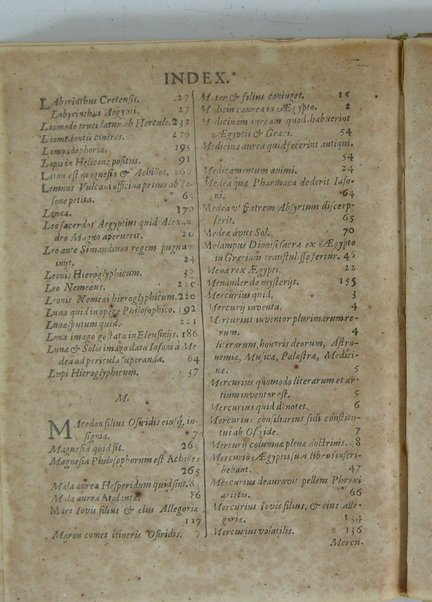 INDEX.
LAbyrinthus Cretensis. 27
Labyrinthus Aegypti. 27
Laomedo trucidatus ab Hercule. 232
Laomedontis cineres. 276
Lampadophoria. 195
Lapis in Helicone positus. 91
Laton est magnesia & Achilles. 266
Lemnus Vulcani officina primo ab Ia-
sone petita. 65
Lenaea. 170
Leo sacerdos Aegyptius quid Alexan
dro Magno aperuerit. 20
Leo ante Simandium regem pugnam
iniit. 24
Leonis Hieroglyphicum. 32
Leo Nemaeus.
Leonis Nemaei hieroglyphicum. 220
Luna quid in opere Philosophico. 192
Lunae sputum quid. 221
Lunae imago gestata in Eleusinijs. 186
Lunae & Solis imago data Iasoni à Me-
dea ad pericula superanda. 64
Lupi Hieroglyphicum. 37
M.
MAcedon filius Osiridis eiusq, in-
signia. 7
Magnesia quid sit. 265
Magnesia Philosophorum est Achilles
265
Mala aurea Hesperidum quid sint. 8
Mala aurea Atalantae. 86
Mars Iovis filius & eius Allegoria
117
Maron comes itineris Osiridis.
Mater & filius coniuges. 15
Medicina aurea in Aegypto. 2
Medicinam veram quod habuerint
Aegyptii & Graeci. 54
Medicina aurea quid fecerint antiqui.
54
Medicamentum animi. 24
Medea quae Pharmaca dederit Iaso-
ni. 64
Medeam fratrem Absyrtum discerp-
serit. 65
Medeae avus Sol. 70
Melampus Dionisi sacra ex Aegypto
in Graeciam transtulisse fertur. 46
Mena rex Aegypti. 22
Menander de mysterijs. 155
Mercurius quid. 3
Mercurij inventa. 4
Mercurius inventor plurimarum re-
rum. 4
literarum, honoris deorum, Astro-
nomiae, Musicae, Palaestrae, Medici-
nae. 5
Mercurius quomodo literarum et ar-
tium inventor est. 5
Mercurius quid denotet. 6
Mercurius consiliarius Isidi constitu-
tus ab Osiride. 7
Mercurij columnae plenae doctrinis. 8
Mercurio Aegyptij suos libros inscri-
bebant. 47
Mercurius deauravit pellem Phrixi
arietis. 66
Mercurius Iovis filius, & eius alle-
goriae. 134
Mercurius volatilis. 136
Mercu-